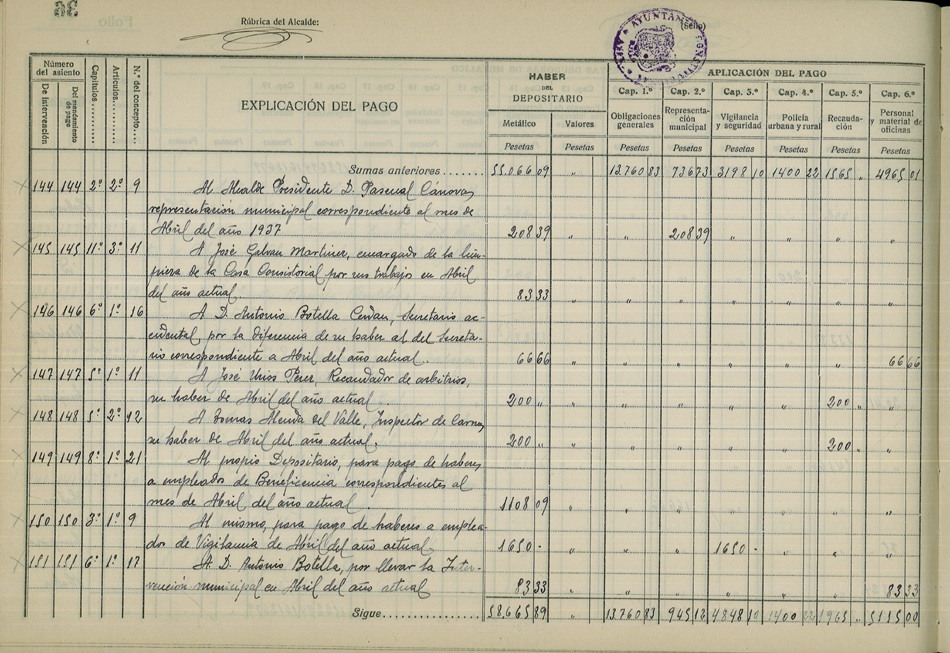 38
Folio
Rúbrica del Alcalde:
(Sello)
AYUNTAM
Número del asiento
De Intervención
Del mandamiento de pago
Capítulos
Artículos
N.º del concepto
EXPLICACIÓN DEL PAGO
HABER DEL DEPOSITARIO
Metálico Valores
Pesetas Pesetas
APLICACIÓN DEL PAGO
Cap. 1.º Cap. 2.º Cap. 3.º Cap. 4.º Cap. 5.º Cap. 6.º
Obligaciones generales Representación municipal Vigilancia y seguridad Policía urbana y rural Recaudación Personal y material de oficinas
Pesetas Pesetas Pesetas Pesetas Pesetas Pesetas
Sumas anteriores 55.066 09 „ 13.760 83 736 73 3198 10 1400 22 1565 „ 4965 01
144 144 2º 2º 9 Al Alcalde Presidente D. Pascual Cánovas,
representación municipal correspondiente al mes de
Abril del año 1937 208 39 „ „ 208 39 „ „ „ „
145 145 11º 3º 11 A José Galvan Martinez, encargado de la lim-
pieza de la Casa Consistorial por sus trabajos en Abril
del año actual. 83 33 „ „ „ „ „ „ „
146 146 6º 1º 16 A D. Antonio Botella Cerdan, Secretario ac-
cidental por la diferencia de su haber al del Secreta-
rio correspondiente a Abril del año actual. 66 66 „ „ „ „ „ „ 66 66
147 147 5º 1º 11 A José Urios Perez, Recaudador de arbitrios,
su haber de Abril del año actual. 200 „ „ „ „ „ „ 200 „ „
148 148 5º 2º 12 A Tomas del Valle, Inspector de Carnes,
su haber de Abril del año actual. 200 „ „ „ „ „ „ 200 „ „
149 149 8º 1º 21 Al propio Depositario, para pago de haberes
a empleados de Beneficencia correspondientes al
mes de Abril del año actual 1108 09 „ „ „ „ „ „ „
150 150 3º 1º 9 Al mismo, para pago de haberes a emplea-
dos de Vigilancia de Abril del año actual. 1650 - „ „ „ 1650 - „ „ „
151 151 6º 1º 17 A D. Antonio Botella, por llevar la Inter-
vención municipal en Abril del año actual 83 33 „ „ „ „ „ „ 83 33
Sigue 58.665 89 „ 13.760 83 945 12 4848 10 1400 22 1965 „ 5115 00